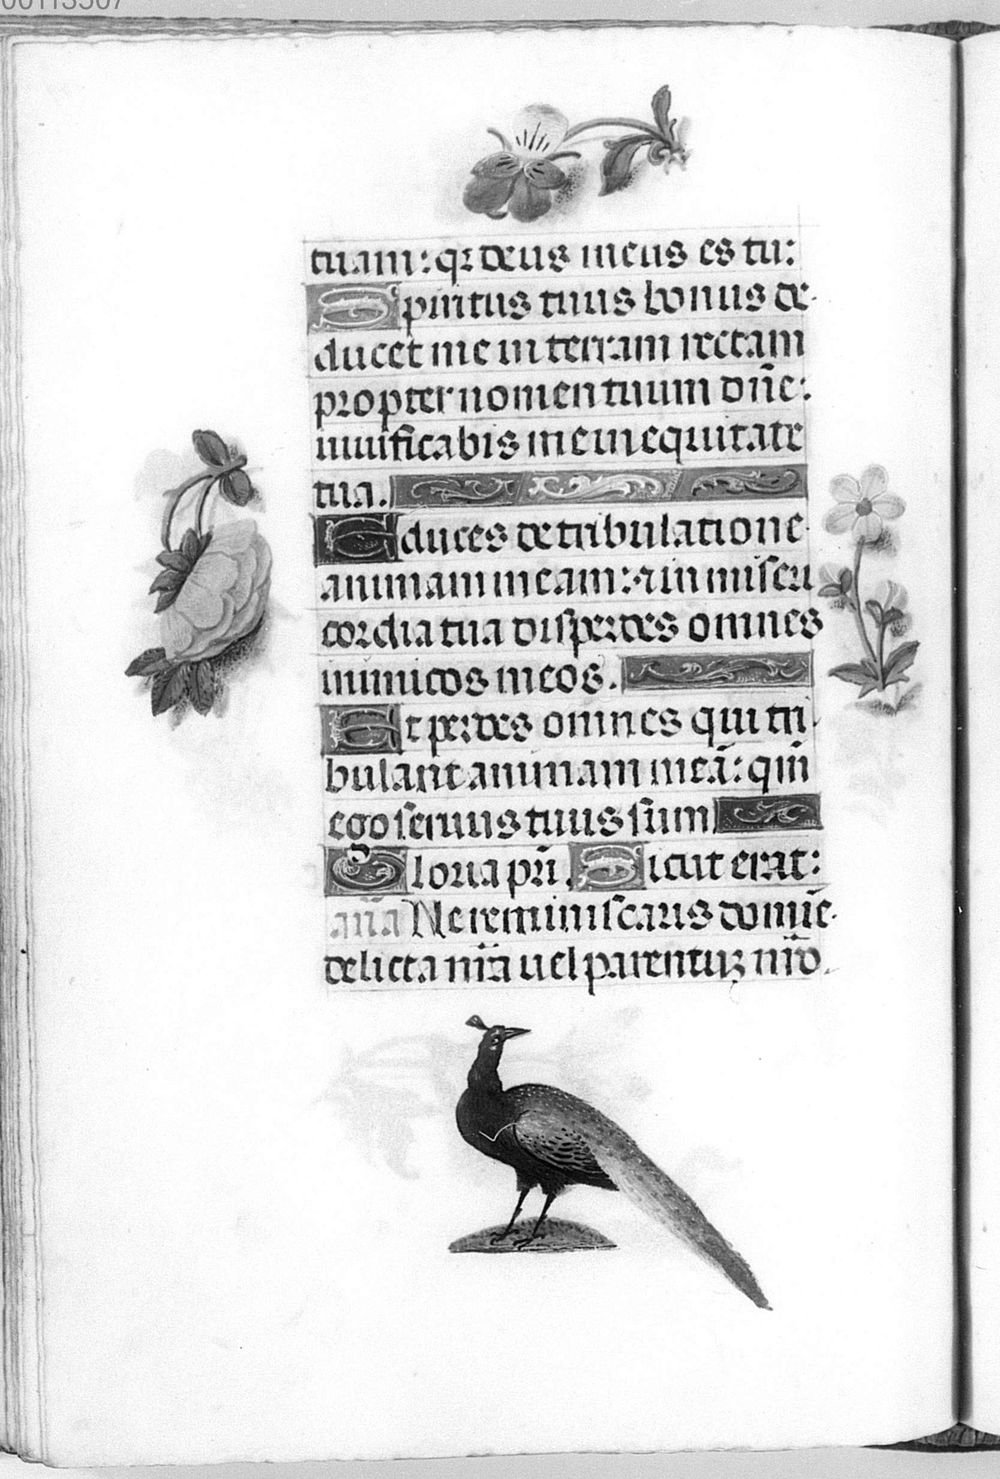 00113507
tuam: qꝛ deus meus es tu:
Spiritus tuus bonus de-
ducet me in terram rectam
propter nomen tuum dn̄e:
uiuificabis me in equitate
tua.
Educes de tribulatione
animam meam: ⁊ in miseri
cordia tua disperdes omnes
inimicos meos.
Et perdes omnes qui tri-
bulant animam meā: qm̄
ego seruus tuus sum
Gloria pr̄i. Sicut erat:
an̄a Ne reminiscaris domīe
delicta nr̄a uel parentuꝫ nr̄o.